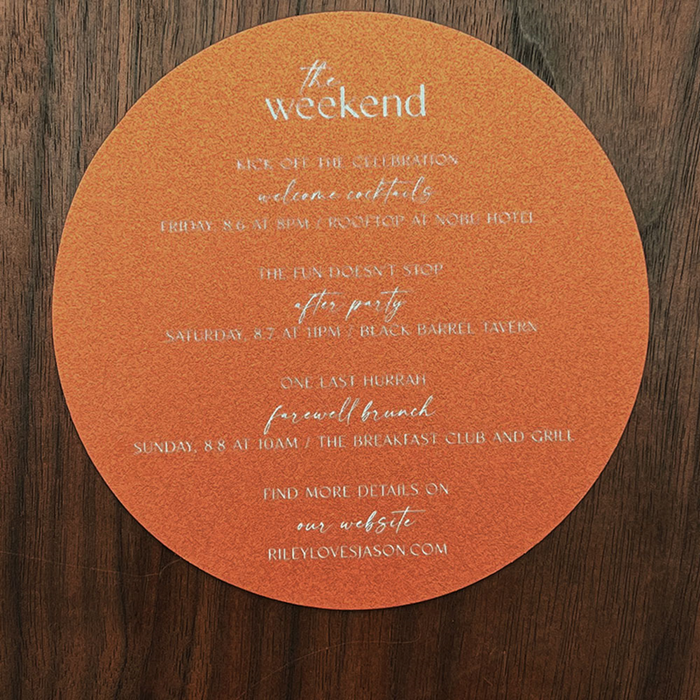 the
weekend
KICK OFF THE CELEBRATION
welcome cocktails
FRIDAY, 8.6 AT 8PM / ROOFTOP AT NOBU HOTEL
THE FUN DOESN'T STOP
after party
SATURDAY, 8.7 AT 11PM / BLACK BARREL TAVERN
ONE LAST HURRAH
farewell brunch
SUNDAY, 8.8 AT 10AM / THE BREAKFAST CLUB AND GRILL
FIND MORE DETAILS ON
our website
RILEYLOVESJASON.COM